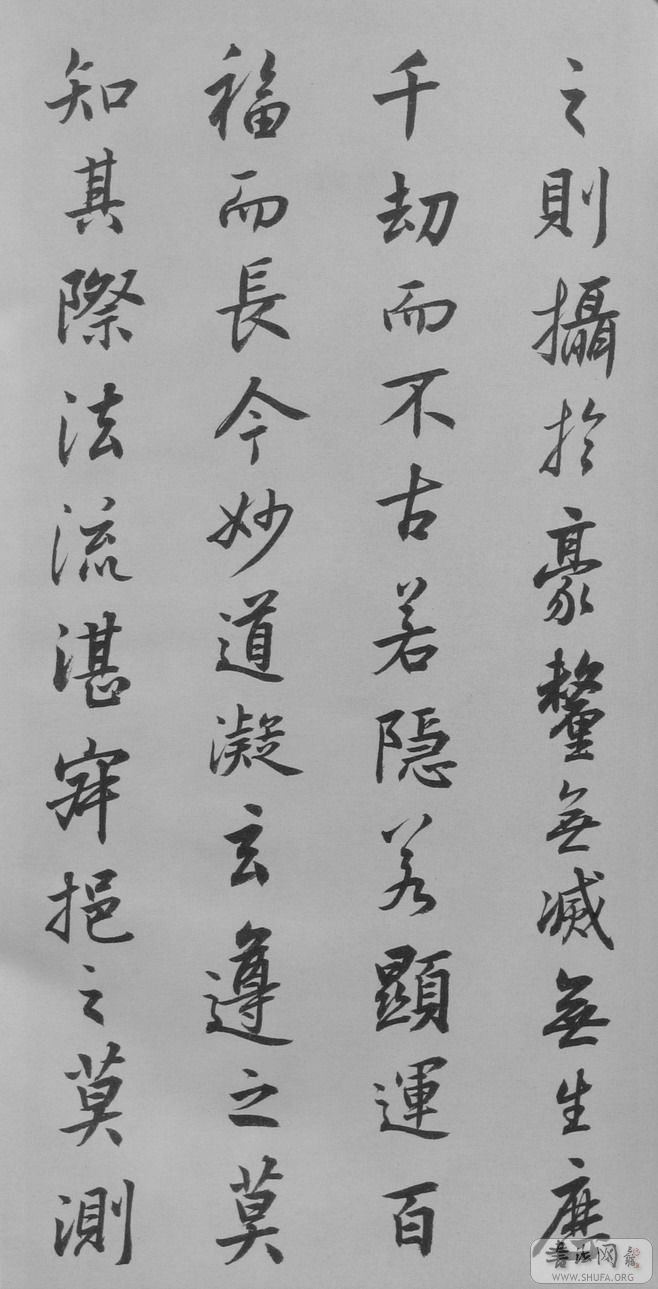 之則攝於豪釐無滅無生歷
千劫而不古若隱若顯運百
福而長今妙道凝玄遵之莫
知其際法流湛寂挹之莫測
書法网
WWW.SHUFA.ORG